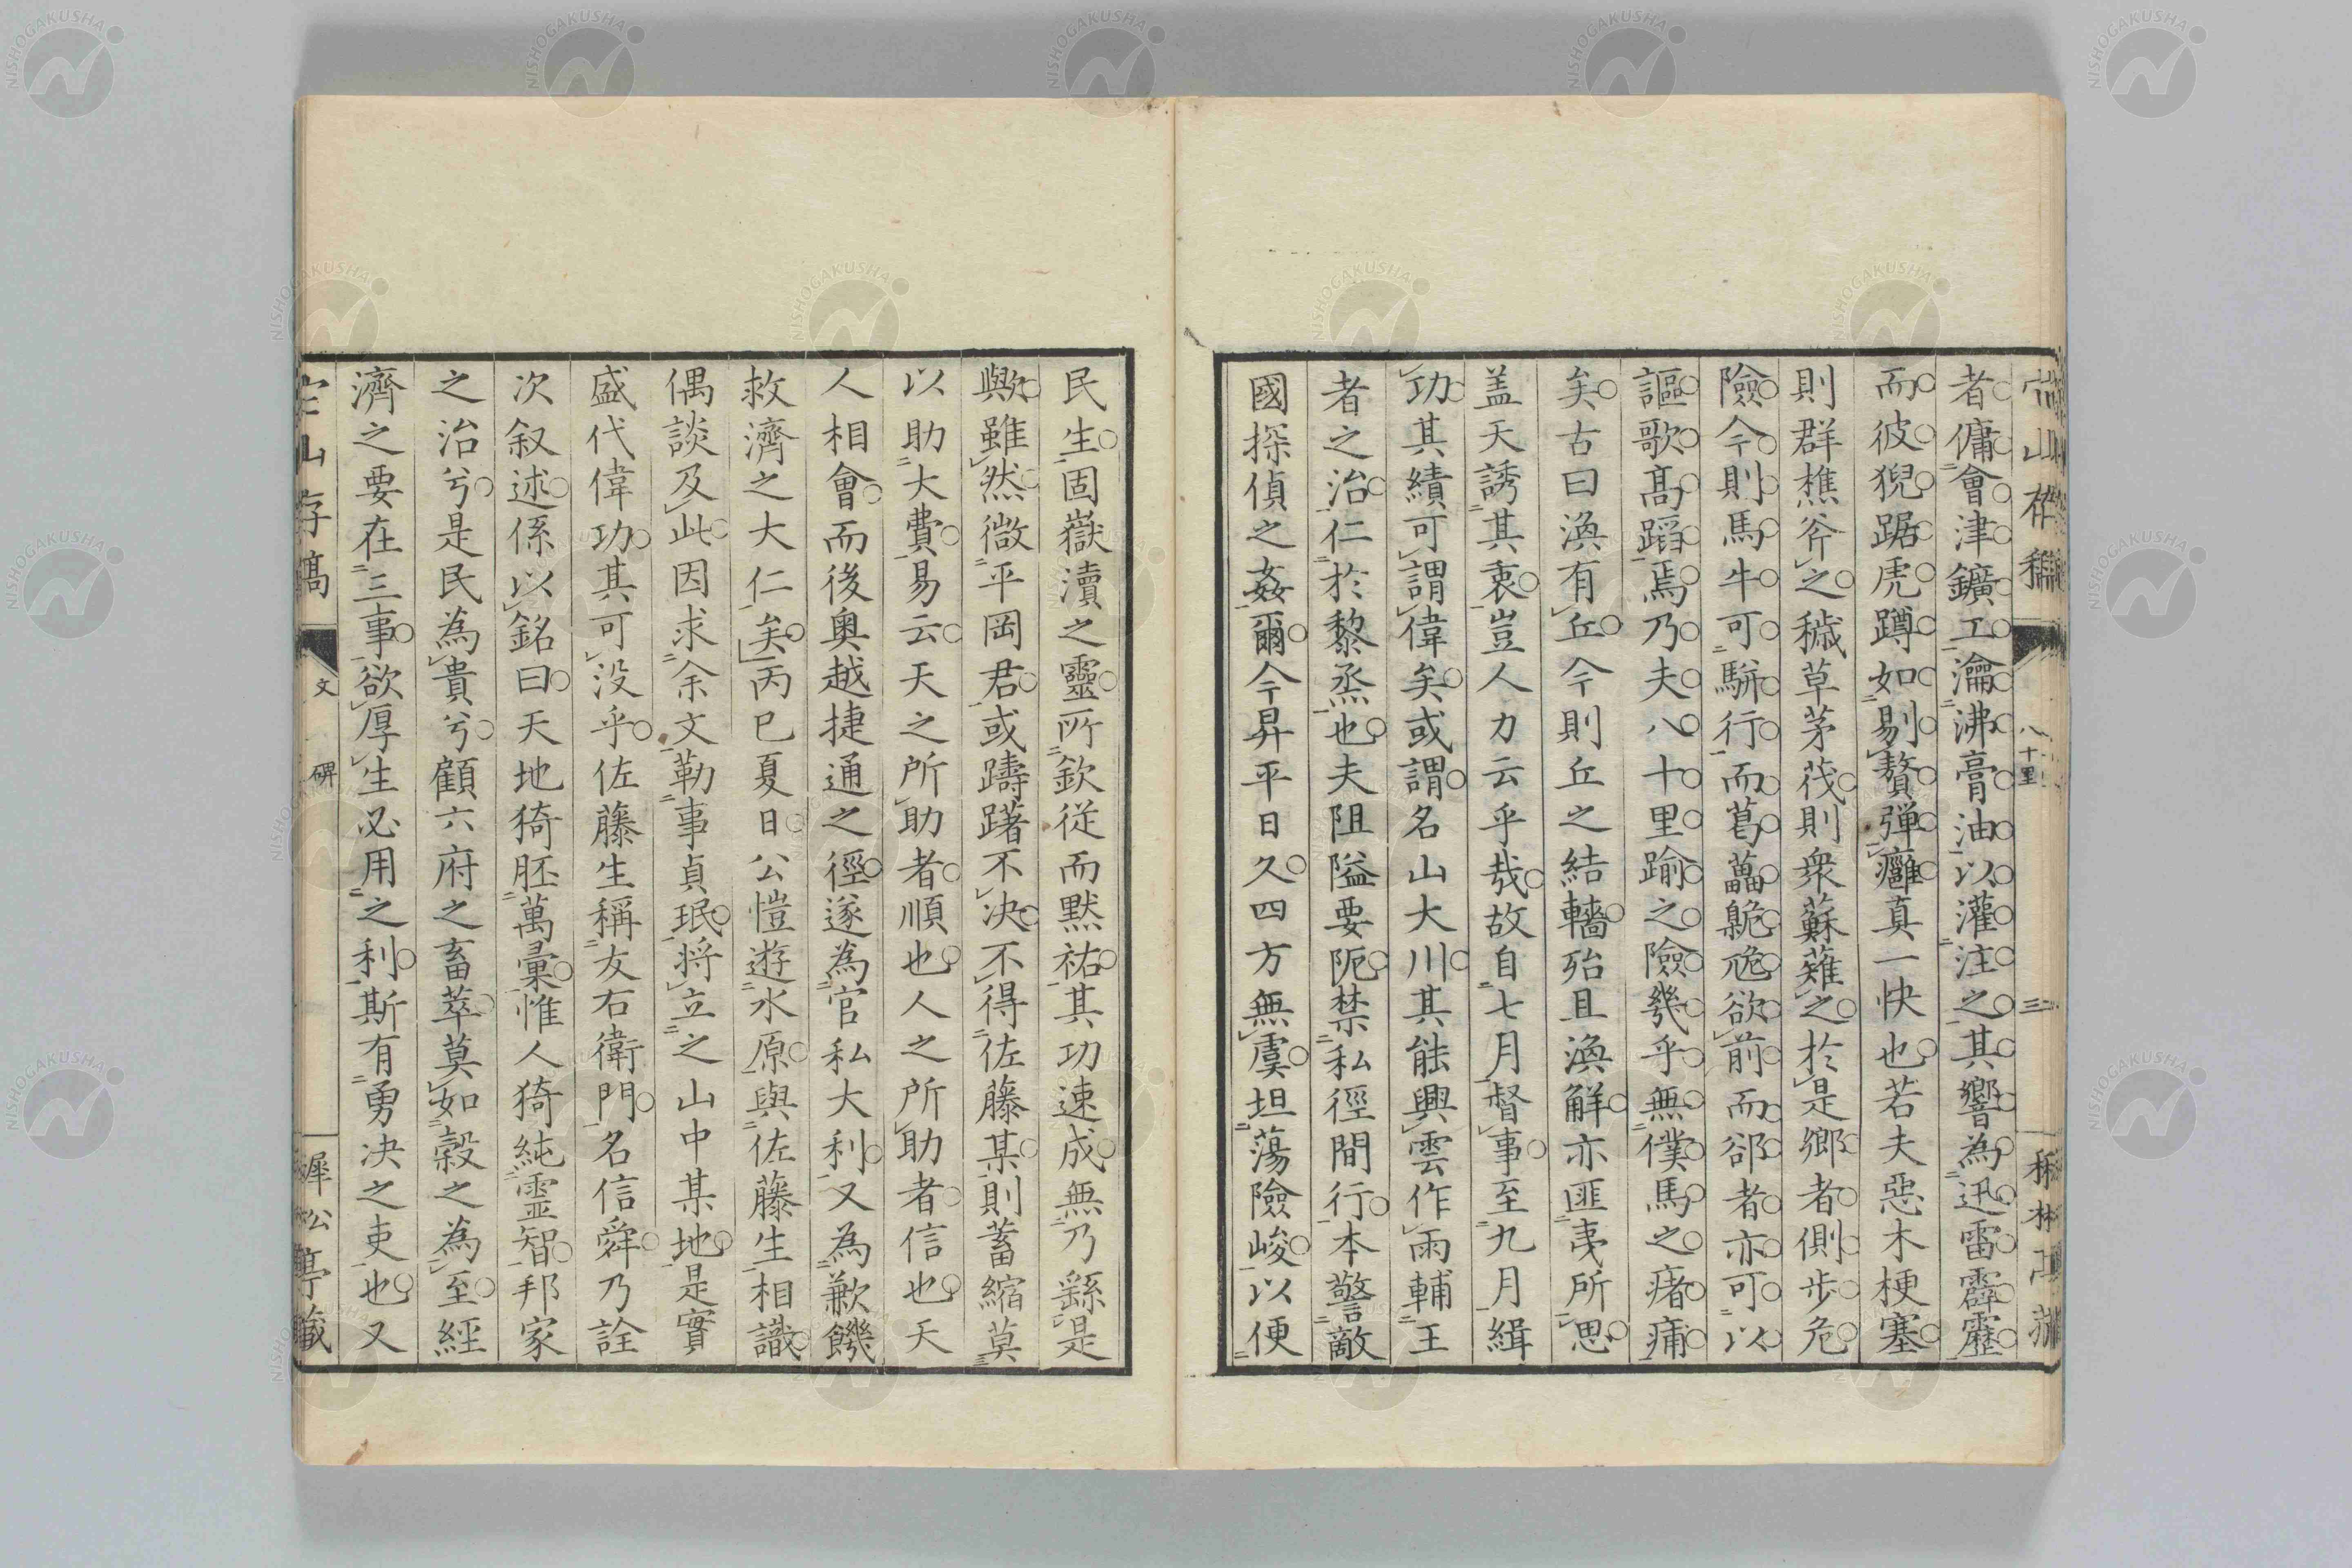 者傭會津鑛工瀹沸膏油以灌注之其響為迅雷霹靂
而彼猊踞虎蹲如剔贅彈癰真一快也若夫惡木梗塞
則群樵斧之穢草茅茷則衆蘇薙之於是鄉者側步危
險今則馬牛可駢行而葛藟臲卼欲前而郤者亦可以
謳歌髙蹈焉乃夫八十里踰之險幾乎無僕馬之瘏痡
矣古曰渙有丘今則丘之結轖殆且渙解亦匪夷所思
盖天誘其衷豈人力云乎哉故自七月督事至九月緝
功其績可謂偉矣或謂名山大川其能興雲作雨輔王
者之治仁於黎烝也夫阻隘要阨禁私徑間行本警敵
國探偵之姦爾今昇平日久四方無虞坦蕩險峻以便
民生固嶽瀆之靈所欽従而黙祐其功速成無乃繇是
歟雖然微平岡君或躊躇不决不得佐藤某則蓄縮莫
以助大費易云天之所助者順也人之所助者信也天
人相會而後奥越捷通之徑遂為官私大利又為歉饑
救濟之大仁矣丙巳夏日公愷遊水原與佐藤生相識
偶談及此因求余文勒事貞珉将立之山中某地是實
盛代偉功其可没乎佐藤生稱友右衛門名信舜乃詮
次叙述係以銘曰天地猗胚萬彙惟人猗純靈智邦家
之治兮是民為貴兮顧六府之畜萃莫如穀之為至經
濟之要在三事欲厚生必用之利斯有勇决之吏也又
山存稿
文
碑
犀松亭藏
八十里
三